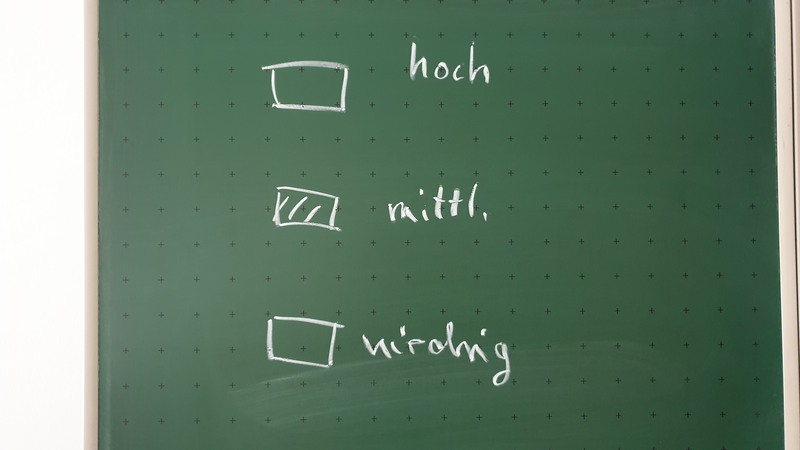 hoch
mittl.
niedrig